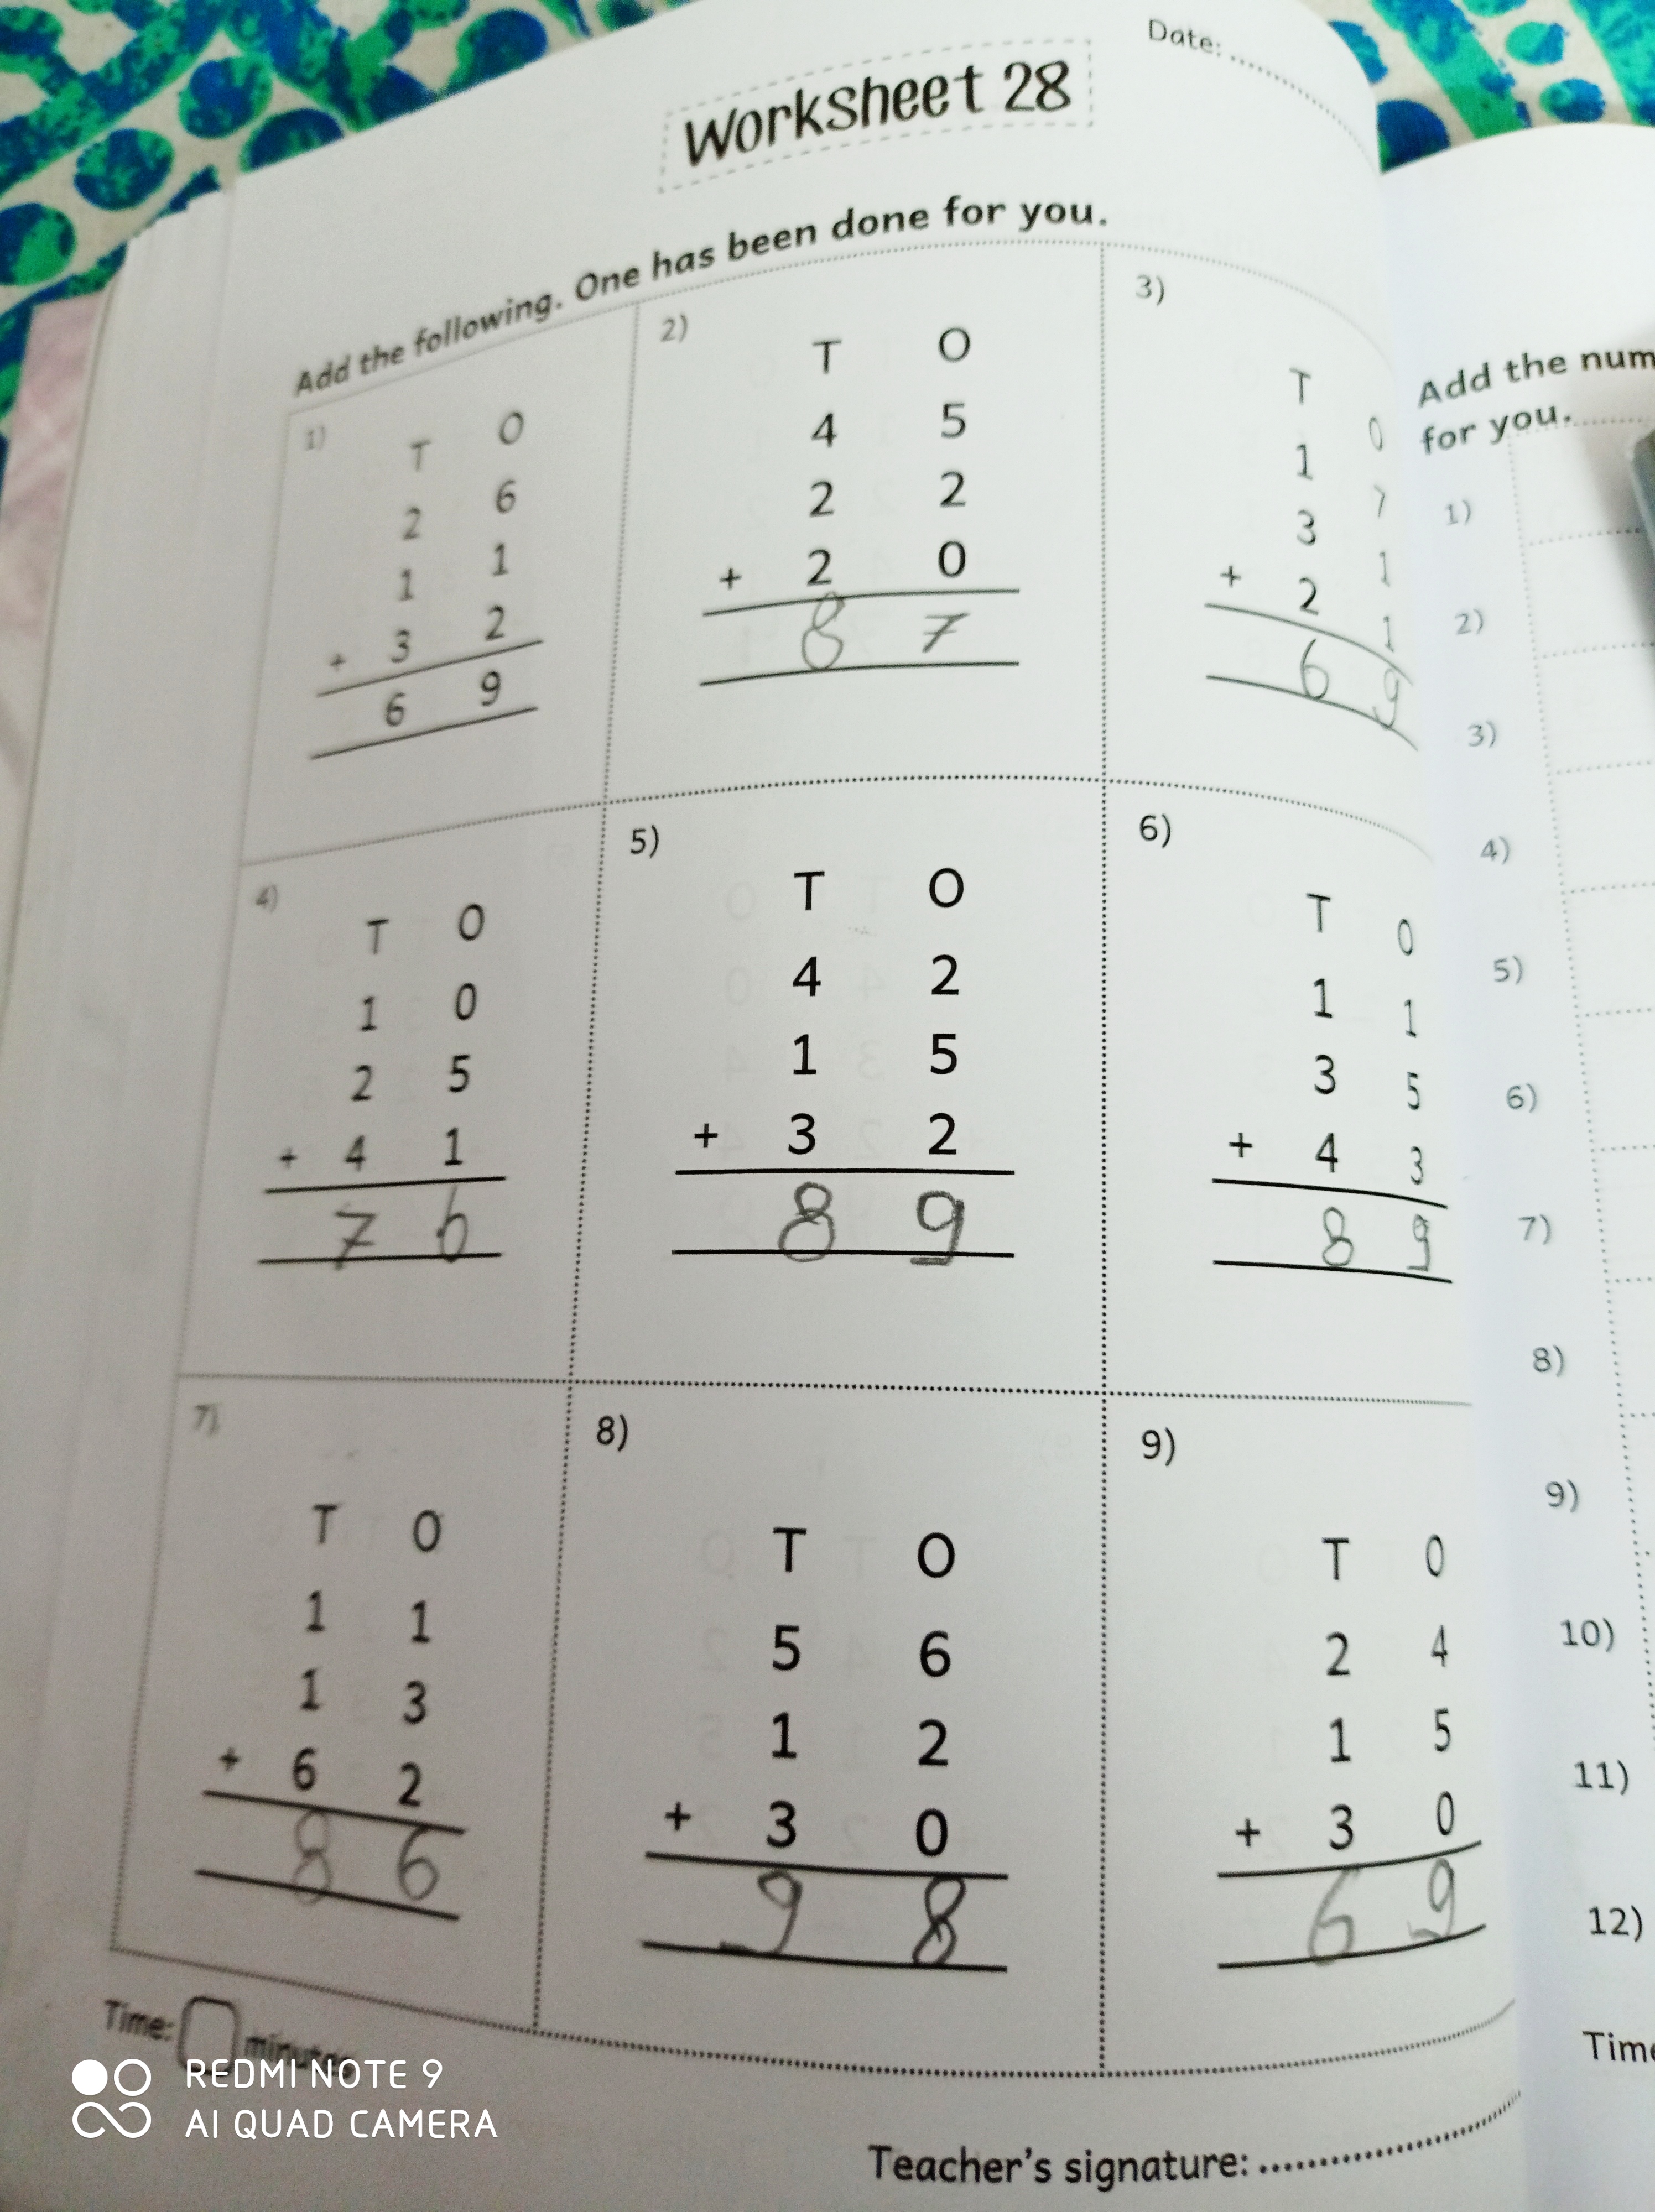 Date:
Worksheet 28
Add the following. One has been done for you.
1)
T O
2 6
1 1
+ 3 2
6 9
2)
T O
4 5
2 2
+ 2 0
8 7
3)
T O
1 7
3 1
+ 2 1
6 9
4)
T O
1 0
2 5
+ 4 1
7 6
5)
T O
4 2
1 5
+ 3 2
8 9
6)
T O
1 1
3 5
+ 4 3
8 9
7)
T O
1 1
1 3
+ 6 2
8 6
8)
T O
5 6
1 2
+ 3 0
9 8
9)
T O
2 4
1 5
+ 3 0
6 9
Time: minutes
Teacher's signature:
Add the num
for you.
1)
2)
3)
4)
5)
6)
7)
8)
9)
10)
11)
12)
Time
REDMI NOTE 9
AI QUAD CAMERA